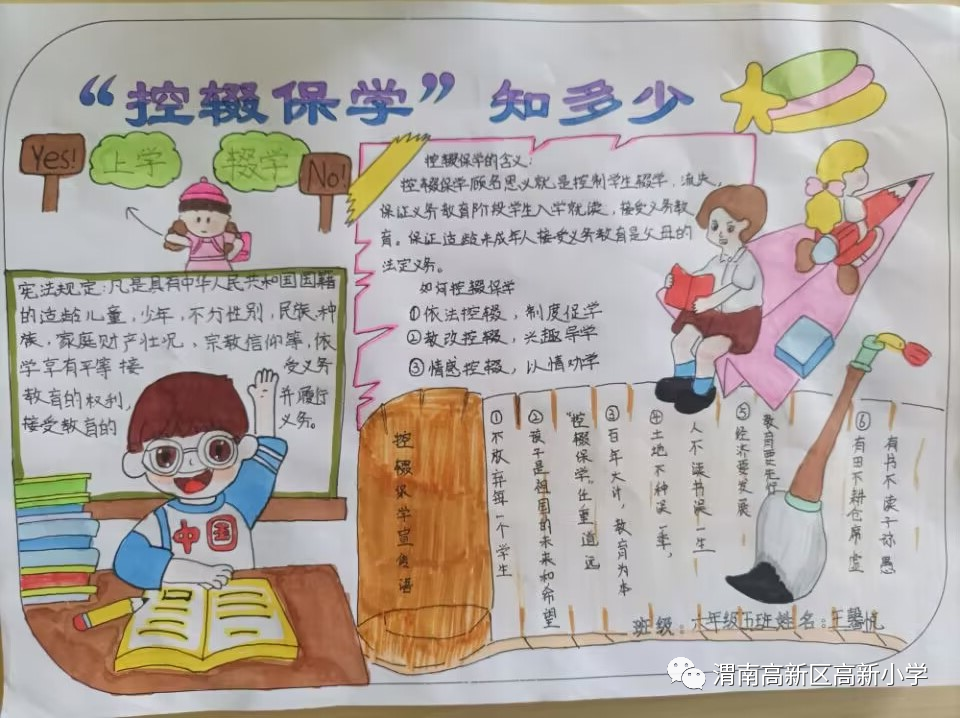 “控辍保学”知多少
Yes!
上学
辍学
No!
控辍保学的含义：
控辍保学顾名思义就是控制学生辍学，流失，
保证义务教育阶段学生入学就读，接受义务教
育。保证适龄未成年人接受义务教育是父母的
法定义务。
如何控辍保学
①依法控辍，制度促学
②教改控辍，兴趣导学
③情感控辍，以情动学
宪法规定：凡是具有中华人民共和国国籍
的适龄儿童，少年，不分性别，民族、种
族，家庭财产壮况，宗教信仰等，依
学享有平等 接 受义务
教育的权利， 并履行
接受教育的 义务。
中国
控辍保学宣传语
①不放弃每一个学生
②孩子是祖国的未来和希望
“控辍保学”任重道远
③百年大计，教育为本
④土地不种误一季，
人不读书误一生
⑤经济要发展
教育要先行
⑥有田不耕仓席虚
有书不读子孙愚
班级：六年级五班姓名：王馨悦
渭南高新区高新小学